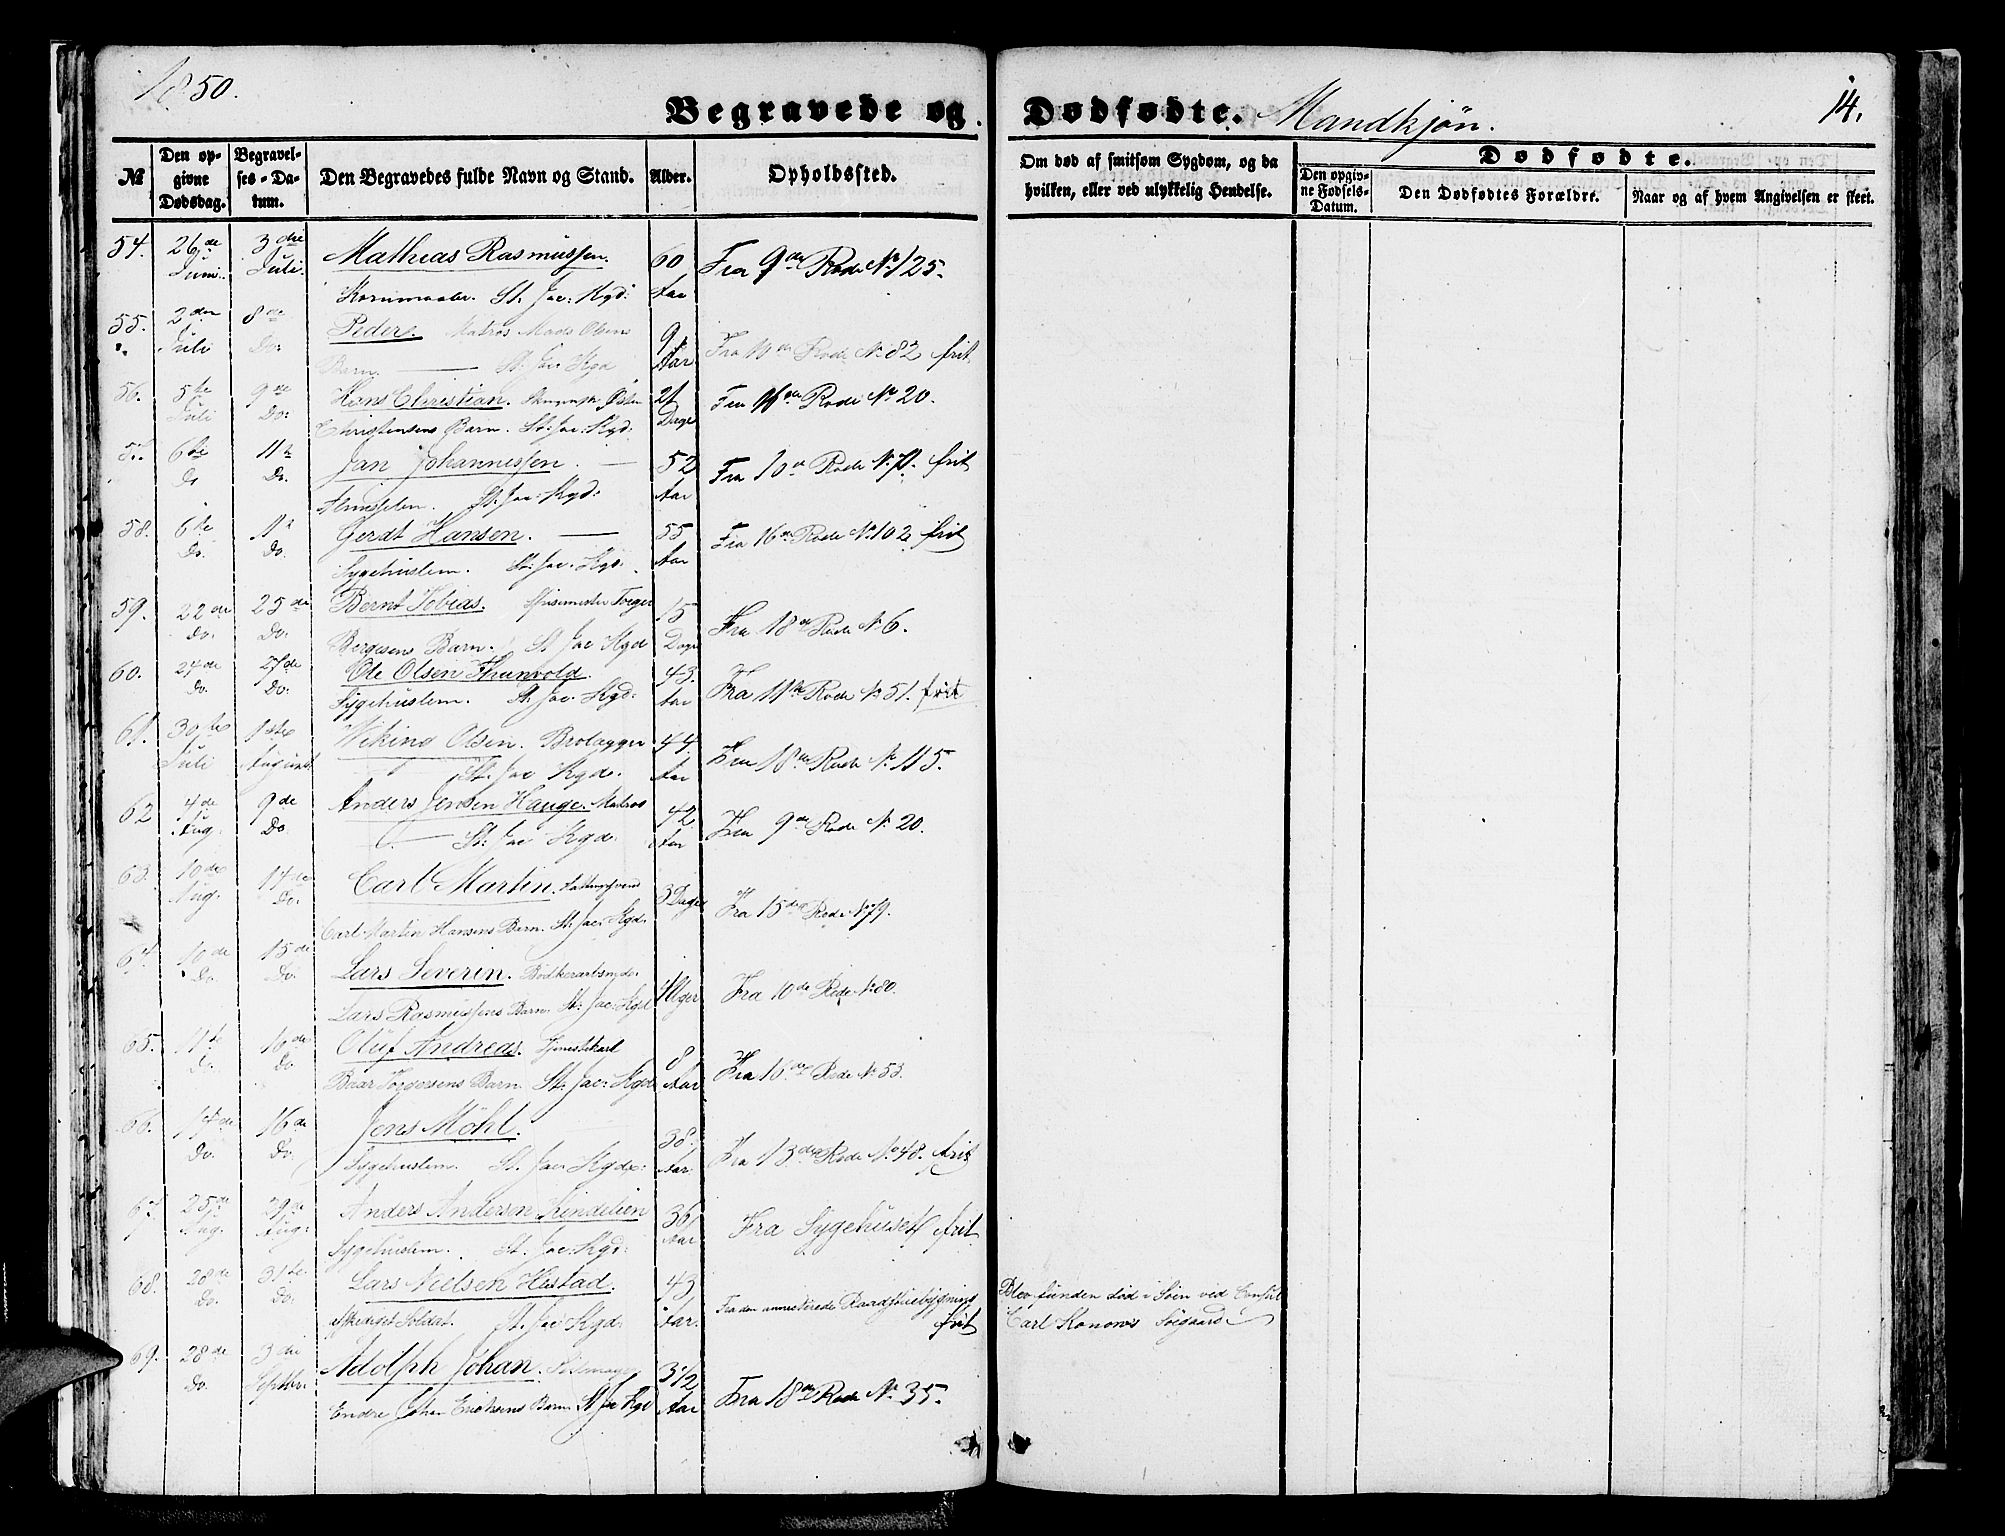 1850.
Begravede og Dødfødte. Mandkjøn. 14.
№
Den opgivne Dødsdag.
Begravelses-Datum.
Den Begravedes fulde Navn og Stand.
Alder.
Opholdssted.
Om død af smitsom Sygdom, og da hvilken, eller ved ulykkelig Hendelse.
Dødfødte.
Den opgivne Fødsels-Datum.
Den Dødfødtes Forældre.
Naar og af hvem Angivelsen er skeet.
54. 26de Juni. 3die Juli. Mathias Rasmussen. 60 Aar Fra 9de Rode No 125.
Kornmaaler. St. Jac: Kgd:
55. 2den Juli 8de Do. Peder. Matros Mads Olsens 9 Aar. Fra 10de Rode No 82 frit
Barn. St. Jac Kgd
56. 5te Juli 9de Do: Hans Christian. 21 Dage Fra 16de Rode No 20.
Christensens Barn. St: Jac: Kgd:
57. 6te Do 11te Do. Jan Johannessen. 52 Aar Fra 10de Rode No frit
St: Jac: Kgd:
58. 6te Do. 11te Do. Gerdt Hansen. 55 Aar Fra 16de Rode No 102 frit
Sygehuslem. St: Jac. Kgd.
59. 22de Do. 25de Do. Bernt Tobias. Torger 15 Dage Fra 18de Rode No 6.
Bergesens Barn. St Jac Kgd
60. 24de Do. 27de Do. Ole Olsen 43 Aar Fra 11te Rode No 51. frit
Sygehuslem. St. Jac. Kgd:
61. 30te Juli 1ste August Wiking Olsen. Brolægger 44 Aar Fra 18de Rode No 115.
St. Jac Kgd.
62 4de Aug. 9de Do Anders Jensen Hauge. Matros 42 Aar Fra 9de Rode No 20.
St: Jac Kgd.
63. 10de Aug. 14de Do. Carl Martin. 3 Dage Fra 15de Rode No 79.
Carl Martin Hansens Barn. St: Jac: Kgd.
64. 10de Do. 15de Do. Lars Severin. Bødkerarbeyds. Uger Fra 10de Rode No 80.
Lars Rasmussens Barn. St: Jac: Kgd
65. 11te Do. 16de Do. Oluf Andreas. Tjenestekarl 8 Aar Fra 16de Rode No 53.
Baar Torgersens Barn. St: Jac: Kgd
66. 14de Do. 16de Do. Jens Möhl. 38. Aar. Fra 13de Rode No 48. frit
Sygehuslem. St. Jac Kgd:
67. 25de Aug. 29de Aug: Anders Andersen Kindelien 36 Aar Fra Sygehuset frit
Sygehuslem. St. Jac: Kgd:
68. 28de Do. 31te Do. Lars Nielsen Hestad. 43 Aar. Fra den annecterede Raadstuebygning frit Blev funden død i Søen ved Consul
afskediget Soldat. St. Jac Kgd. Carl Konows Søegaard
69. 28de Do. 3die Septbr. Adolph Johan. 3 1/2 Aar Fra 18de Rode No 35.
Endre Johan Ericksens Barn St Jac Kgd